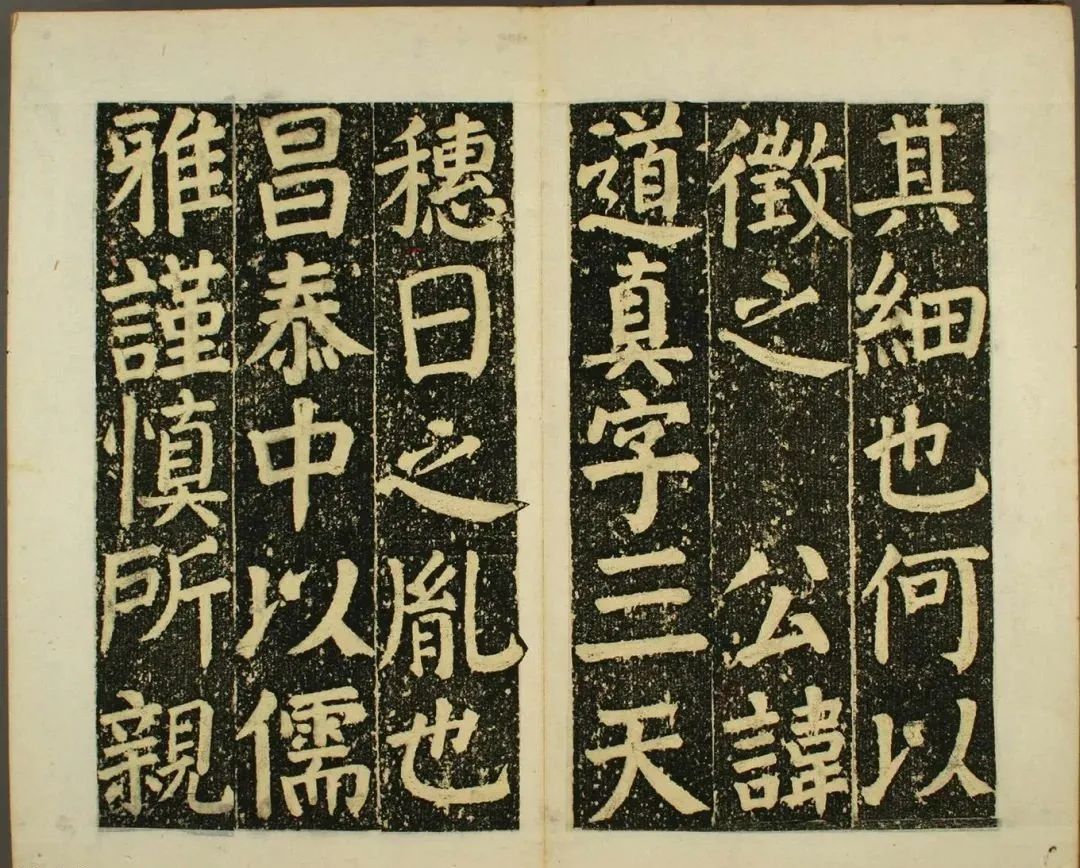 其細也何以
徵之 公諱
道真字三天
穗日之胤也
昌泰中以儒
雅謹慎所親